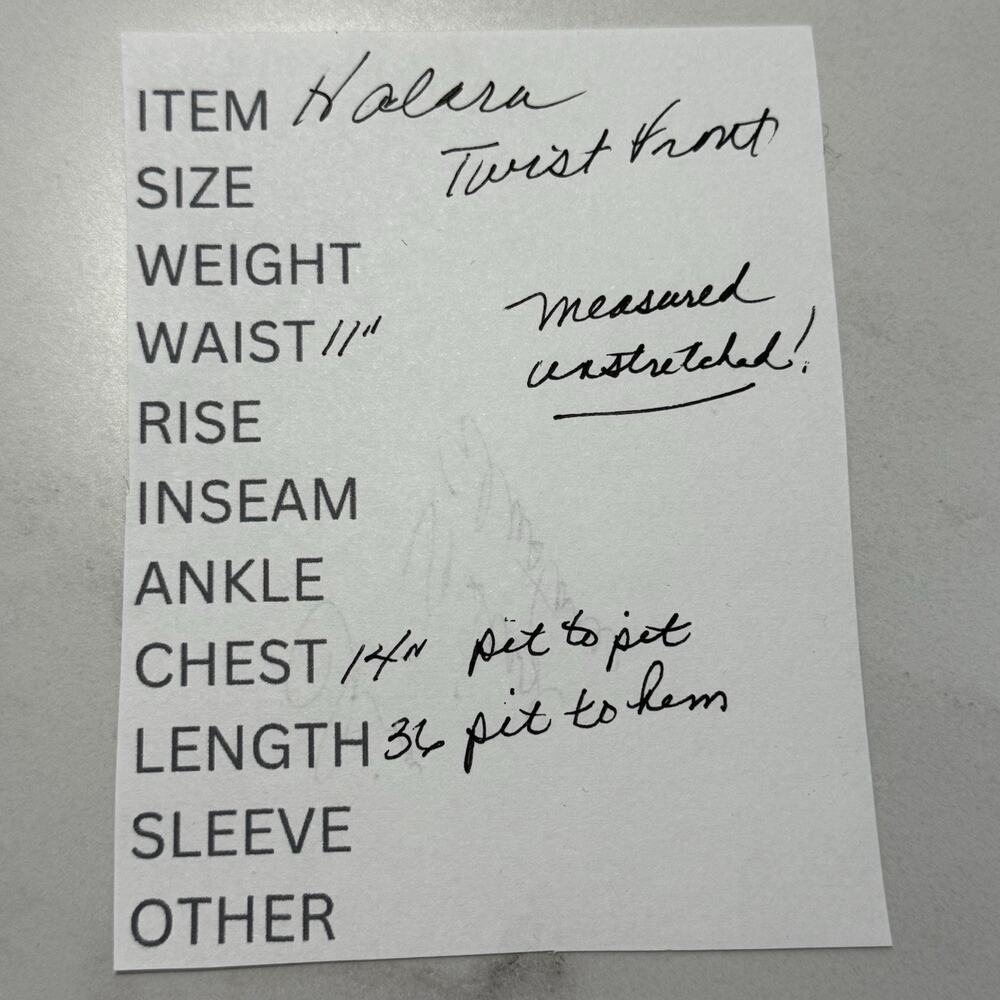 ITEM Halara
Twist Front
SIZE
WEIGHT
WAIST 11"
measured
unstretched!
RISE
INSEAM
ANKLE
CHEST 14" pit to pit
LENGTH 36 pit to hem
SLEEVE
OTHER